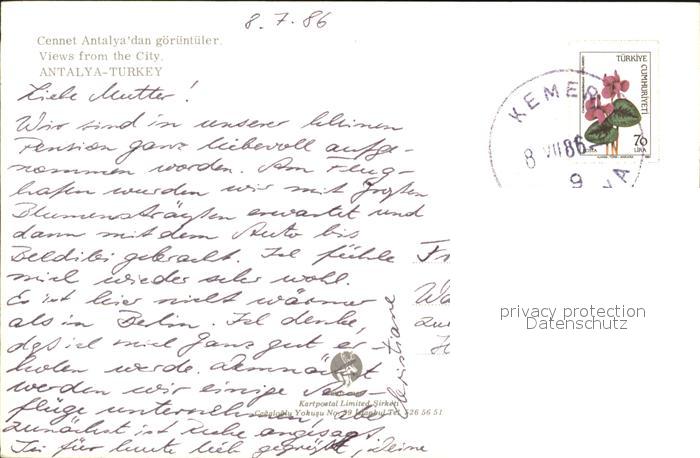 8.7.86
Cennet Antalya'dan görüntüler.
Views from the City.
ANTALYA-TURKEY
Liebe Mutter!
Wir sind in unserer kleinen
Pension ganz liebevoll aufge-
nommen worden. Am Flug-
hafen wurden wir mit großen
Blumensträußen erwartet und
dann mit dem Auto bis
Beldibi gebracht. Ich fühle
mich wieder sehr wohl.
Es ist hier nicht wärmer
als in Berlin. Ich denke,
daß ich mich ganz gut er-
holen werde. Demnächst
werden wir einige Aus-
flüge unternehmen, aber
zunächst ist Ruhe angesagt.
Sei für heute lieb gegrüßt, Deine
Christiane
Kartpostal Limited Şirketi
Cağaloğlu Yokuşu No. 29 İstanbul Tel. 526 56 51
TÜRKİYE
CUMHURİYETİ
70
LİRA
KEMER
8 VII 86
9
Fr
Wa
zu
privacy protection
Datenschutz